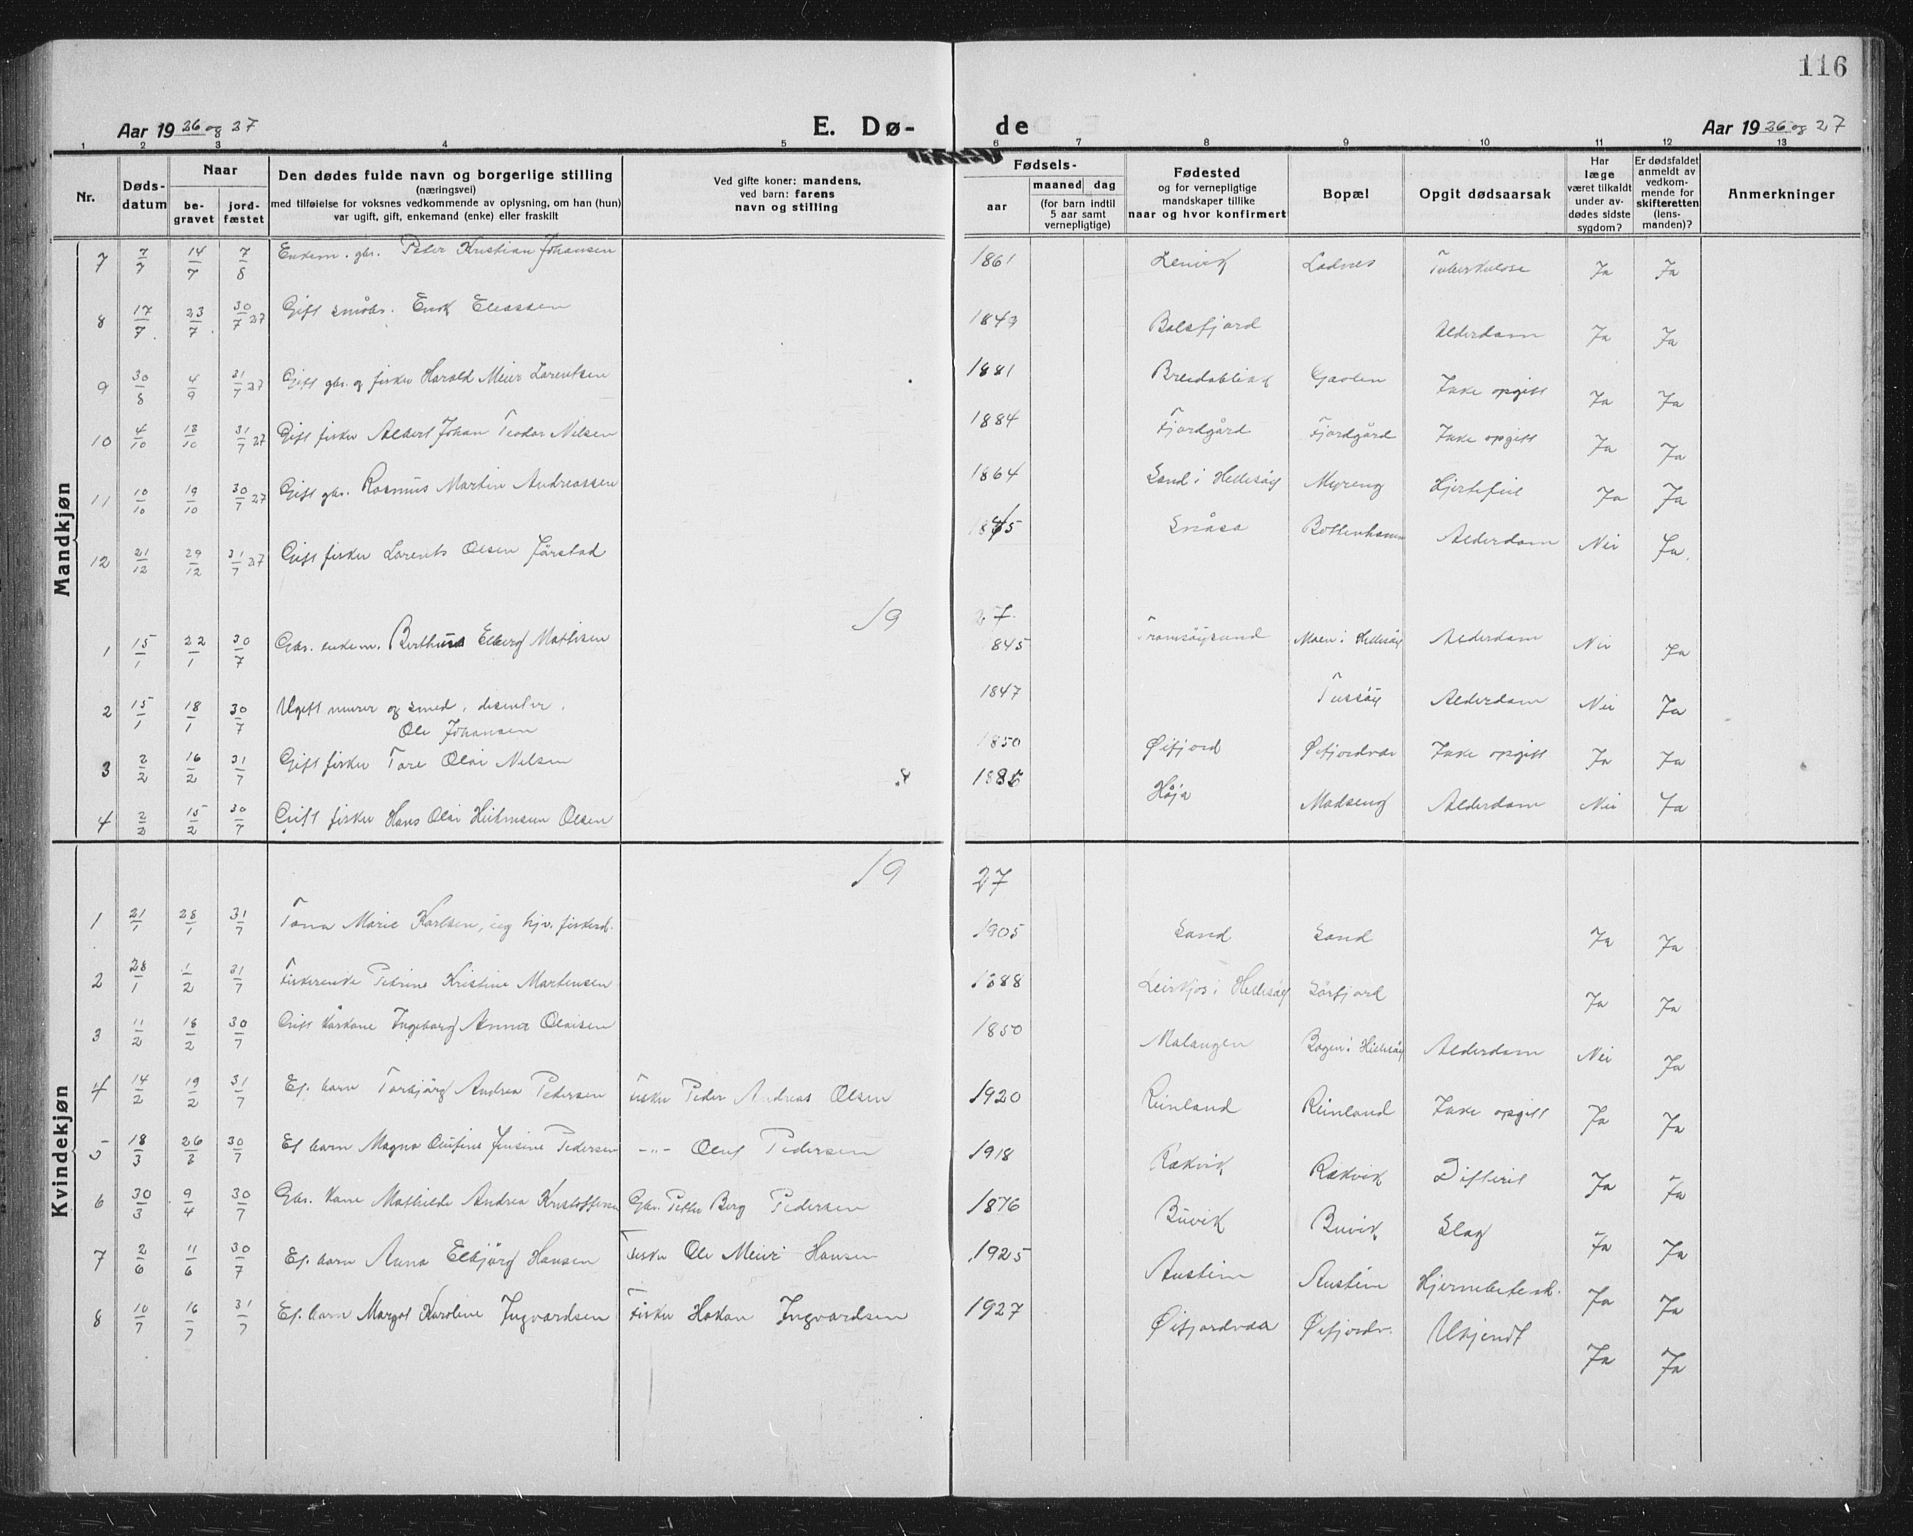 116
Aar 1926 og 27
E. Dø-
de
Aar 1926 og 27
1 2 3 4 5 6 7 8 9 10 11 12 13
Nr.
Døds-
datum
Naar
be-
gravet
jord-
fæstet
Den dødes fulde navn og borgerlige stilling
(næringsvei)
med tilføielse for voksnes vedkommende av oplysning, om han (hun)
var ugift, gift, enkemand (enke) eller fraskilt
Ved gifte koner: mandens,
ved barn: farens
navn og stilling
Fødsels-
aar
maaned dag
(for barn indtil
5 aar samt
vernepligtige)
Fødested
og for vernepligtige
mandskaper tillike
naar og hvor konfirmert
Bopæl
Opgit dødsaarsak
Har
læge
været tilkaldt
under av-
dødes sidste
sygdom?
Er dødsfaldet
anmeldt av
vedkom-
mende for
skifteretten
(lens-
manden)?
Anmerkninger
Mandkjøn
7 7/7 14/7 7/8 Enkem. gbr. Peter Kristian Johansen 1861 Lenvik Ladnes Tuberkulose Ja Ja
8 17/7 23/7 30/7 27 Gift småbr. Enok Eleassen 1843 Balsfjord Alderdom Ja Ja
9 30/8 4/9 31/7 27 Gift gbr. og fisker Harald Meier Larentsen 1881 Breidablikk Gavlen Ikke opgitt Ja Ja
10 4/10 13/10 31/7 27 Gift fisker Albert Johan Teodor Nilsen 1884 Fjordgård Fjordgård Ikke opgitt Ja Ja
11 10/10 19/10 30/7 27 Gift gbr. Rasmus Martin Andreassen 1864 Sand i Hellesøy Myreng Hjertefeil Ja Ja
12 21/12 29/12 31/7 27 Gift fisker Lorents Olsen Jørstad Snåsa Bottenhamn Alderdom Nei Ja.
19 27.
1 15/1 22/1 30/7 Gbr. enkem. Berthus Elberg Mathisen 845 Tromsøysund Moen i Hellesøy Alderdom Nei Ja
2 15/1 18/1 30/7 Ugift murer og smed, disenter.
Ole Johansen 1847 Tussøy Alderdom Nei Ja
3 2/2 16/2 31/7 Gift fisker Tore Olai Nilsen 1850 Øifjord Øifjordvær Ikke opgitt Ja Ja
4 2/2 15/2 30/7 Gift fisker Hans Olai Olsen Håja Madseng Alderdom Nei Ja
Kvindekjøn
19 27
1 21/1 28/1 31/7 Tona Marie Karlsen, ug hjv. fiskerd. 1905 Sand Sand Ja Ja
2 28/1 1/2 31/7 Fiskerenke Petrine Kristine Martinsen 1888 i Hellesøy Sørfjord Ja Ja
3 11/2 18/2 30/7 Gift kårkone Ingeborg Anna Olaisen 1850 Malangen Bogen i Hellesøy Alderdom Nei Ja
4 14/2 19/2 31/7 Ef. barn Torbjørg Andrea Pedersen Fisker Peder Andreas Olsen 1920 Reinland Reinland Ikke opgitt Ja Ja
5 18/3 26/3 30/7 Ef. barn Magna Olufine Jensine Pedersen -"- Oluf Pedersen 1918 Rækvik Rækvik Difterit Ja Ja
6 30/3 9/4 30/7 Gbr. kone Mathilde Andrea Kristoffersen Gbr. Petter Berg Pedersen 1876 Buvik Buvik Slag Ja Ja
7 2/6 11/6 30/7 Ef. barn Anna Elbjørg Hansen Fisker Ole Meier Hansen 1925 Austein Austein Hjernebetensk. Ja Ja
8 10/7 16/7 31/7 Ef. barn Margot Karoline Ingvardsen Fisker Hakon Ingvardsen 1927 Øifjordvær Øifjordv. Ukjendt Ja Ja